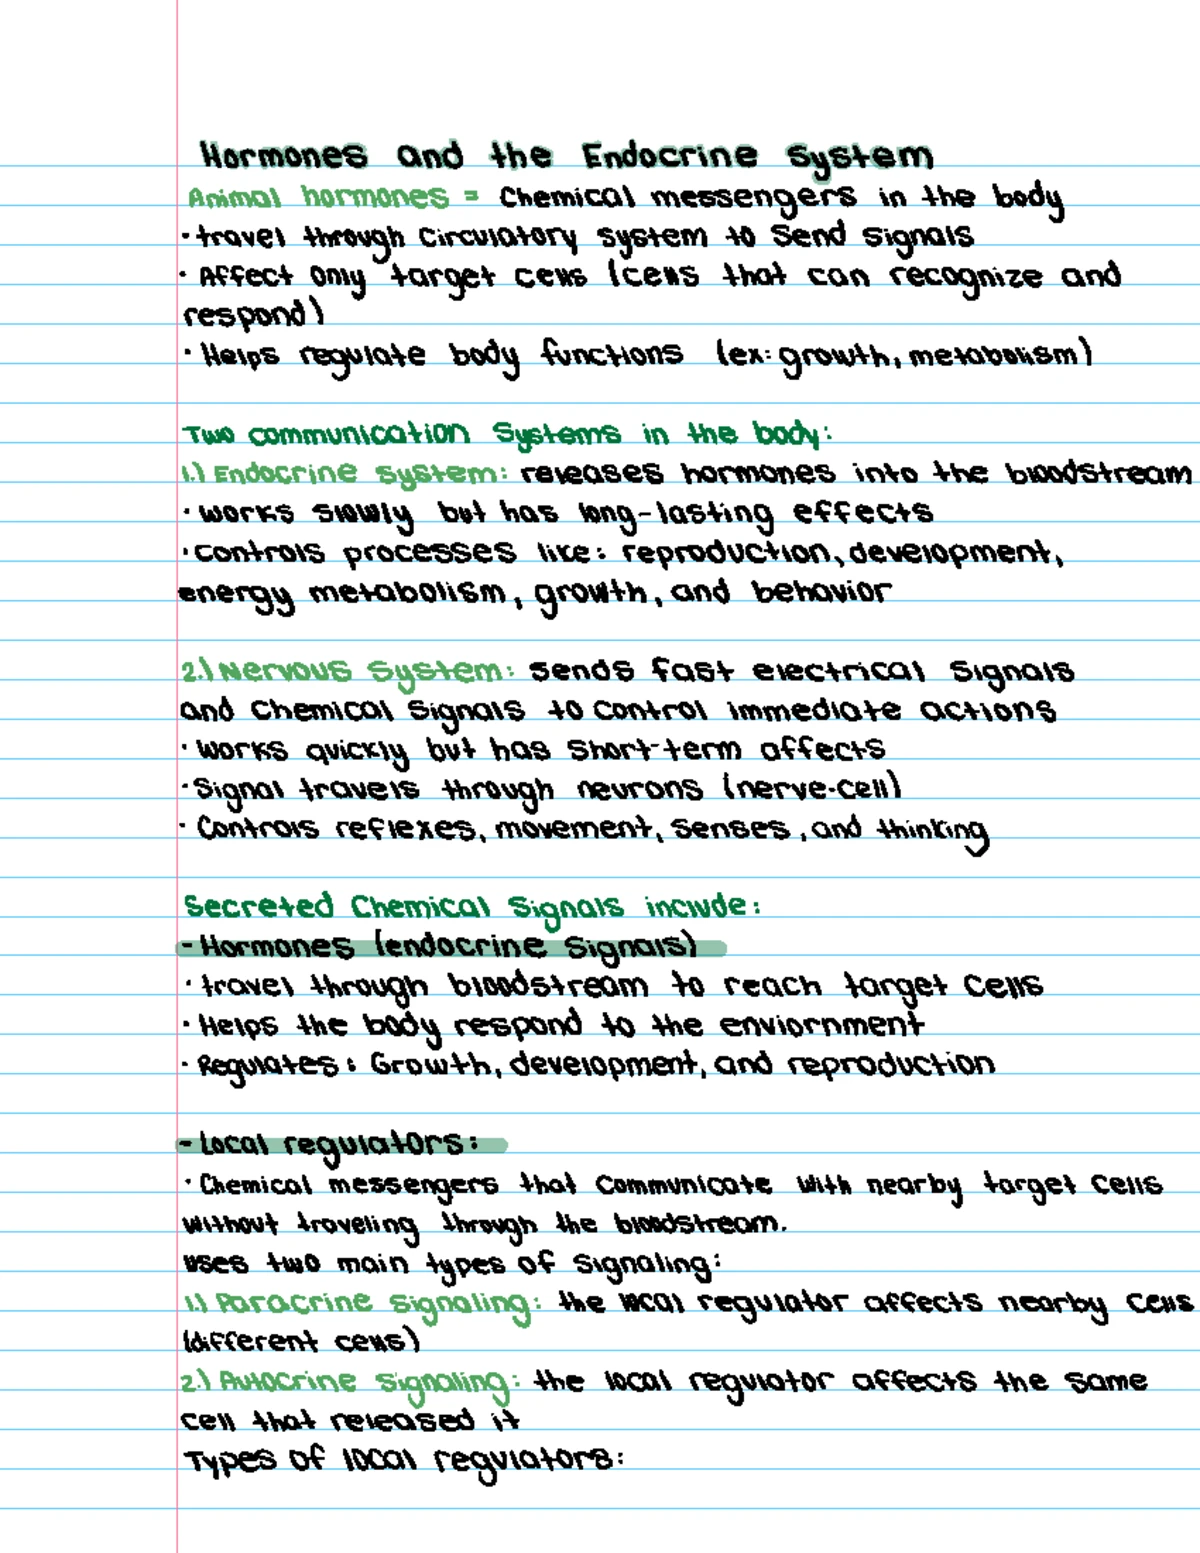 Hormones and the Endocrine System
Animal hormones = Chemical messengers in the body
·travel through circulatory system to send signals
· Affect only target cells (cells that can recognize and
respond)
· Helps regulate body functions (ex: growth, metabolism)
Two communication systems in the body:
1.) Endocrine system: releases hormones into the bloodstream
· works slowly but has long-lasting effects
· controls processes like: reproduction, development,
energy metabolism, growth, and behavior
2.) Nervous System: sends fast electrical signals
and chemical signals to control immediate actions
· works quickly but has short-term affects
· Signal travels through neurons (nerve-cell)
· Controls reflexes, movement, senses, and thinking
Secreted Chemical Signals include:
- Hormones (endocrine signals)
· travel through bloodstream to reach target cells
· Helps the body respond to the enviornment
· Regulates: Growth, development, and reproduction
- Local regulators:
· Chemical messengers that communicate with nearby target cells
without traveling through the bloodstream.
uses two main types of signaling:
1.) Paracrine signaling: the local regulator affects nearby cells
(different cells)
2.) Autocrine signaling: the local regulator affects the same
cell that released it
Types of local regulators: